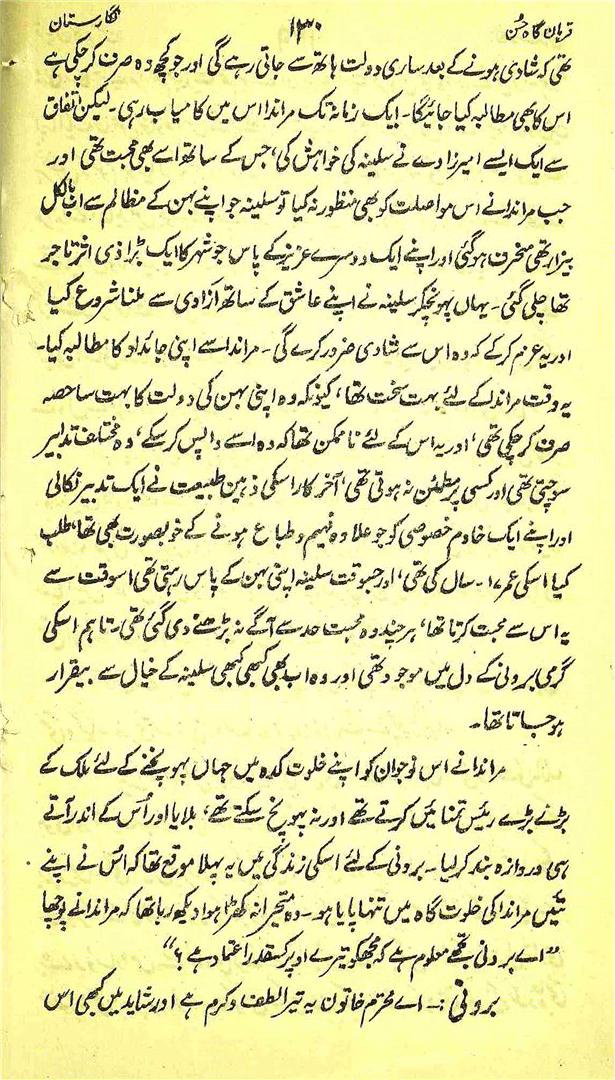 قربان گاہ حُسن ۱۳۰ نگارستان
تھی کہ شادی ہونے کے بعد ساری دولت ہاتھ سے جاتی رہے گی اور جو کچھ وہ صرف کر چکی ہے
اس کا بھی مطالبہ کیا جائیگا۔ ایک زمانہ تک مراندا اس میں کامیاب رہی۔ لیکن اتفاق
سے ایک ایسے امیرزادے نے سلینہ کی خواہش کی، جس کے ساتھ اسے بھی محبت تھی اور
جب مراندا نے اس مواصلت کو بھی منظور نہ کیا تو سلینہ جو اپنے بہن کے مظالم سے اب بالکل
بیزار تھی منحرف ہو گئی اور اپنے ایک دوسرے عزیز کے پاس جو شہر کا ایک بڑا ذی اثر تاجر
تھا چلی گئی۔ یہاں پہونچکر سلینہ نے اپنے عاشق کے ساتھ آزادی سے ملنا شروع کیا
اور یہ عزم کر کے کہ وہ اس سے شادی ضرور کرے گی۔ مراندا سے اپنی جائداد کا مطالبہ کیا۔
یہ وقت مراندا کے لئے بہت سخت تھا، کیونکہ وہ اپنی بہن کی دولت کا بہت سا حصہ
صرف کر چکی تھی، اور یہ اس کے لئے ناممکن تھا کہ وہ اسے واپس کر سکے، وہ مختلف تدابیر
سوچتی تھی اور کسی پر مطمئن نہ ہوتی تھی، آخر کار اسکی ذہین طبیعت نے ایک تدبیر نکالی
اور اپنے ایک خادم خصوصی کو جو علاوہ فہیم و طباع ہونے کے خوبصورت بھی تھا، طلب
کیا اسکی عمر ۱۷۔ سال کی تھی، اور جسوقت سلینہ اپنی بہن کے پاس رہتی تھی اسوقت سے
یہ اس سے محبت کرتا تھا، ہر چند وہ محبت حد سے آگے نہ بڑھنے دی گئی تھی۔ تاہم اسکی
گرمی برونی کے دل میں موجود تھی اور وہ اب بھی کبھی کبھی سلینہ کے خیال سے بیقرار
ہو جاتا تھا۔
مراندا نے اس نوجوان کو اپنے خلوت کدہ میں جہاں پہونچنے کے لئے ملک کے
بڑے بڑے رئیس تمنائیں کرتے تھے اور نہ پہونچ سکتے تھے، بلایا اور اُس کے اندر آتے
ہی دروازہ بند کر لیا۔ برونی کے لئے اسکی زندگی میں یہ پہلا موقع تھا کہ اُس نے اپنے
تئیں مراندا کی خلوت گاہ میں تنہا پایا ہو۔ وہ متحیرانہ کھڑا ہوا دیکھ رہا تھا کہ مراندا نے پوچھا
"اے برونی تجھے معلوم ہے کہ مجھکو تیرے اوپر کسقدر اعتماد ہے؟"
برونی:۔ اے محترم خاتون یہ تیرا لطف و کرم ہے اور شاید میں کبھی اس